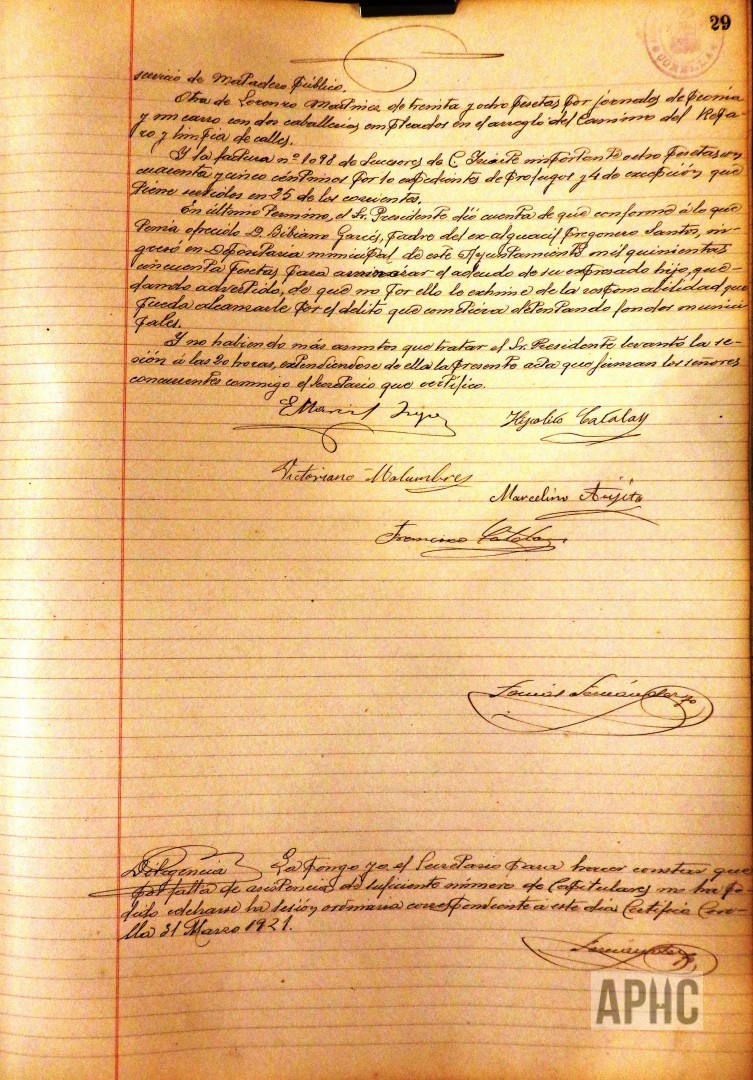 29
CORELLA
servicio de Matadero público.
Otra de Lorenzo Martinez de treinta y ocho pesetas por jornales de peonia
y un carro con dos caballerias empleados en el arreglo del Camino del
y limpia de calles.
Y la factura nº 1098 de Sucesores de C. importante ocho pesetas con
cuarenta y cinco céntimos por 10 expedientes de profugos y 4 de excepción que
tiene servidos en 25 de los corrientes.
En último termino, el Sr. Presidente dió cuenta de que conforme á lo que
tenia ofrecido D. Bibiano Garcés, padre del ex-alguacil pregonero Santos, in-
gresó en Depositaria municipal de este Ayuntamiento mil quinientas
cincuenta pesetas para aminorar el adeudo de su expresado hijo, que-
dando advertido, de que no por ello le exhime de la responsabilidad que
pueda alcanzarle por el delito que cometiera detentando fondos munici-
pales.
Y no habiendo más asuntos que tratar el Sr. Presidente levantó la se-
sión á las 20 horas, extendiendose de ella la presente acta que firman los señores
concurrentes conmigo el Secretario que certifico.
Hipolito Catalan
Victoriano Malumbres
Marcelino Arijita
Francisco Catalan
Diligencia La pongo yo, el Secretario para hacer constar que
por falta de asistencia de suficiente número de Capitulares no ha po-
dido celebrarse la sesión ordinaria correspondiente á este dia Certifico Core-
lla 31 Marzo 1921.
APHC